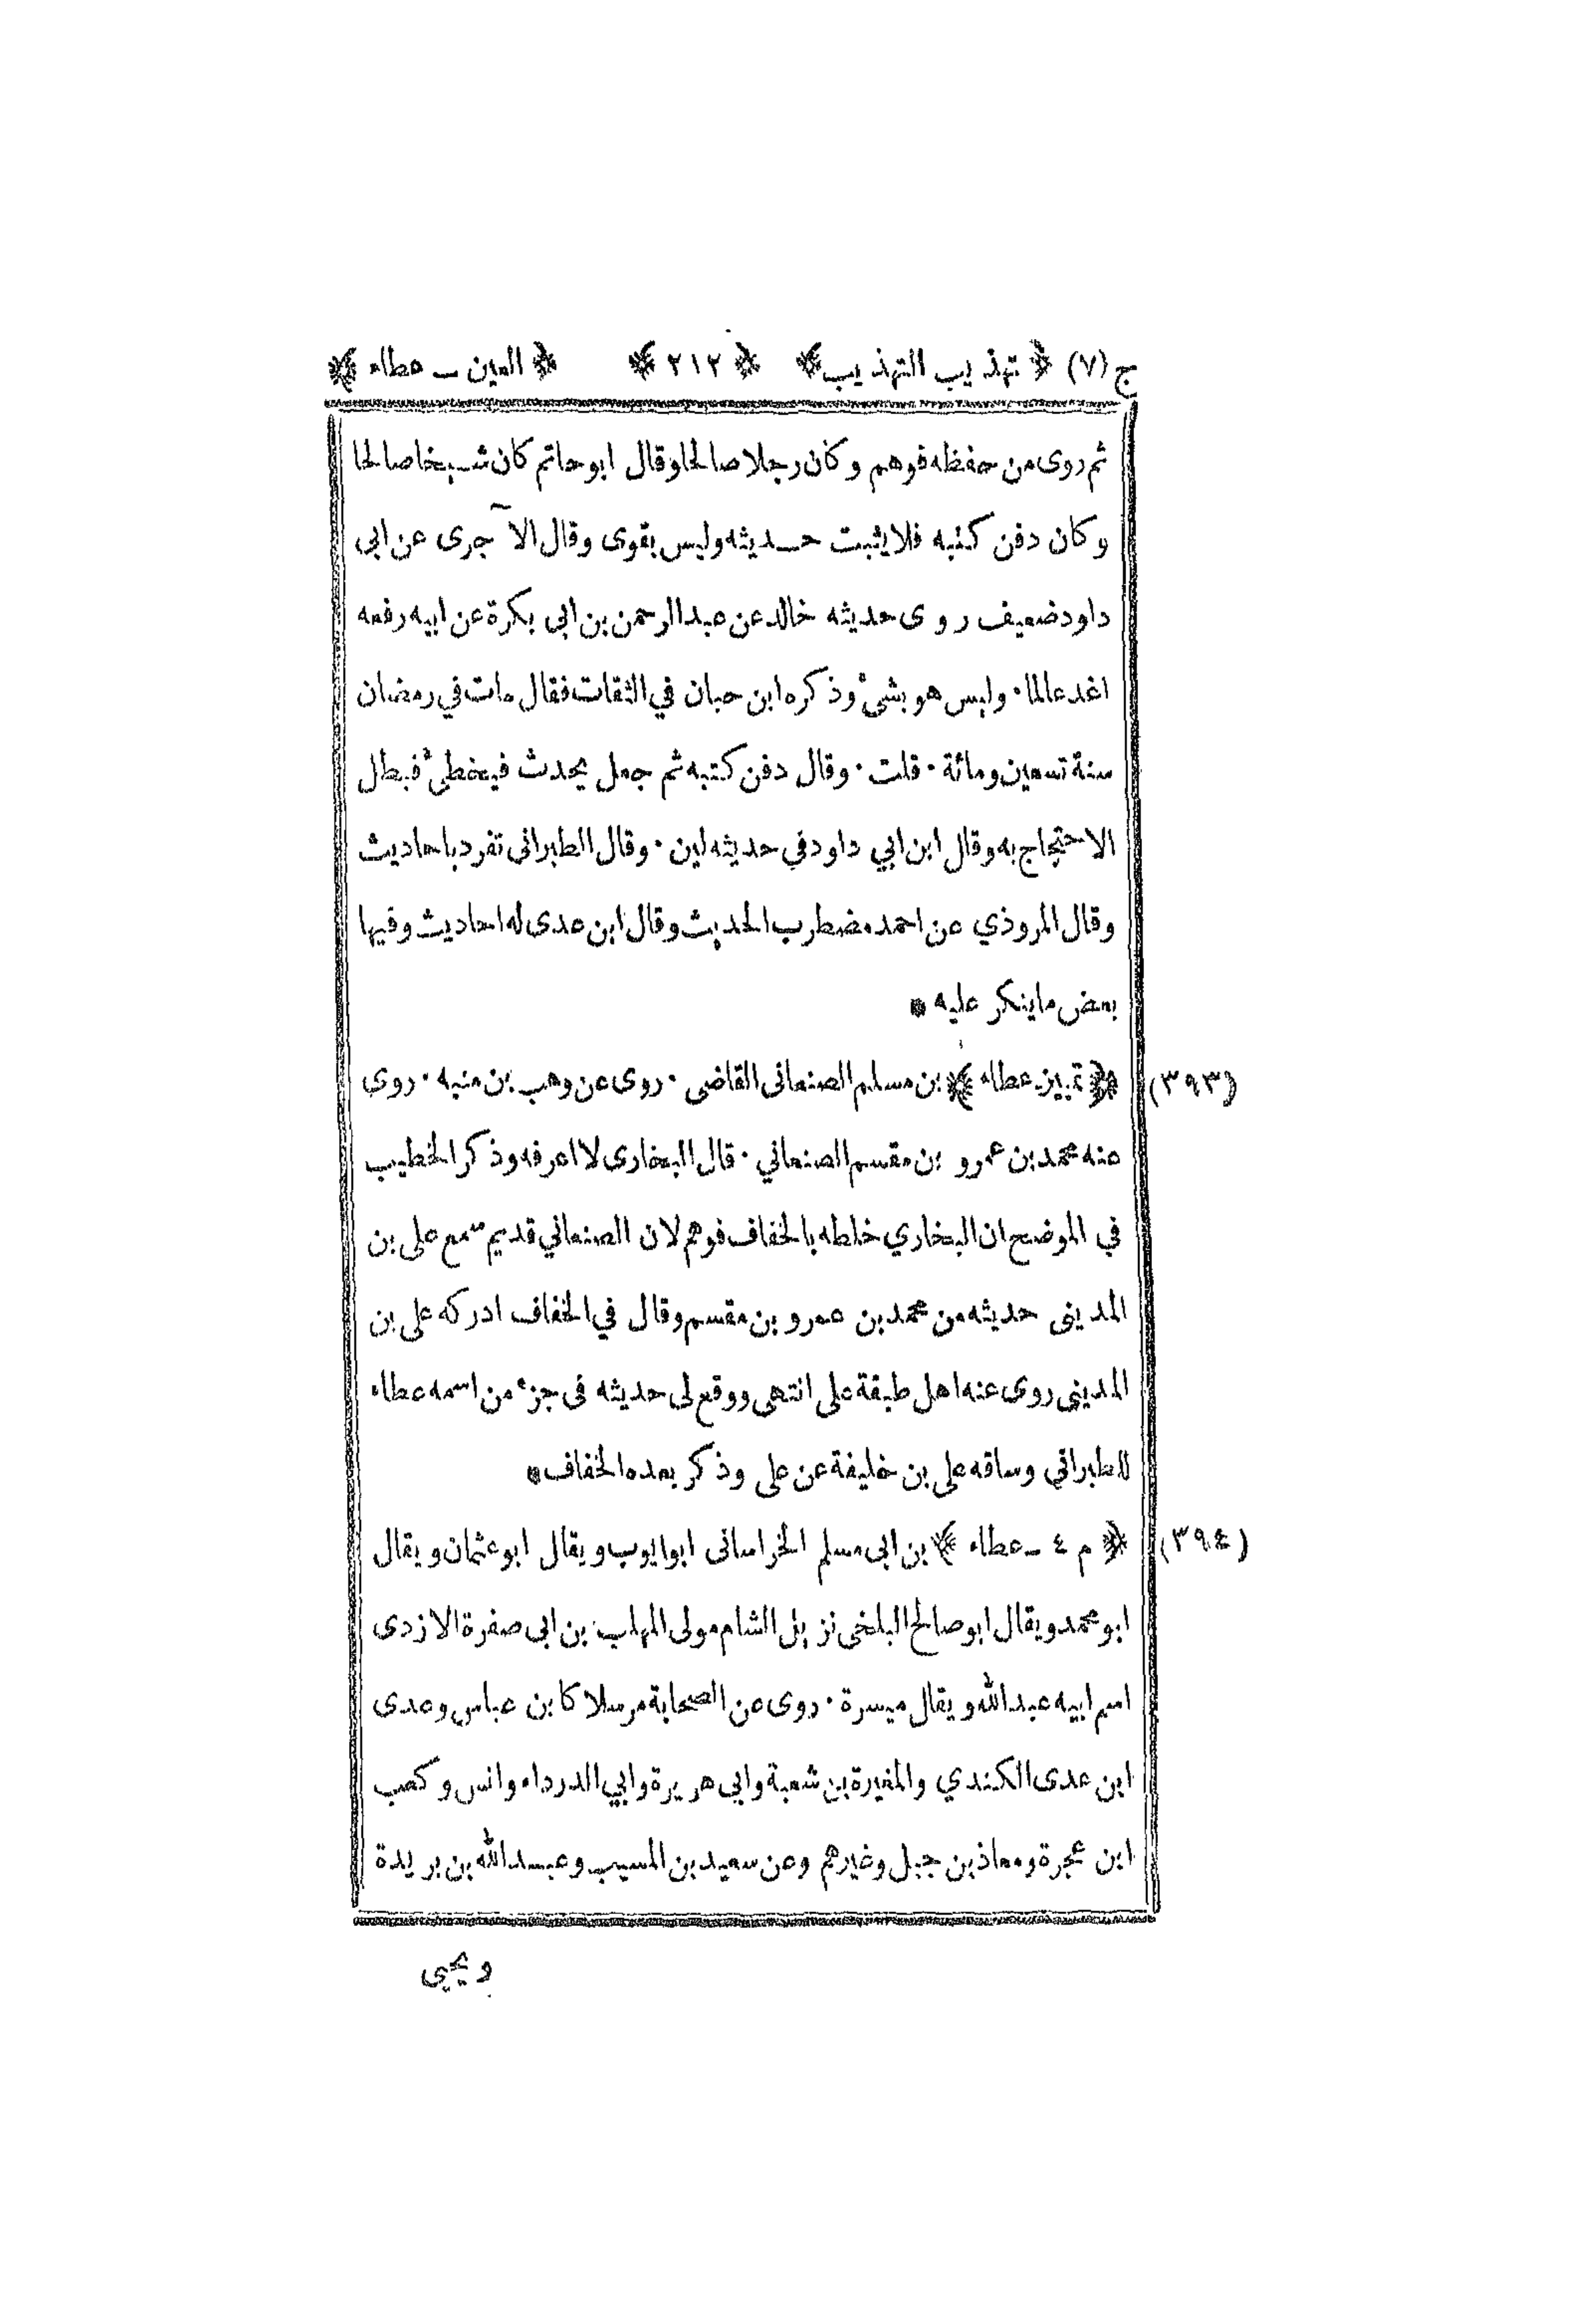 ج (٧) ﴿ تهذيب التهذيب ﴾ ﴿ ٢١٢ ﴾ ﴿ العين ـ عطاء ﴾
ثم روى من حفظه فوهم وكان رجلا صالحا وقال ابو حاتم كان شيخا صالحا
وكان دفن كتبه فلا يثبت حديثه وليس بقوى وقال الآجرى عن ابى
داود ضعيف روى حديثه خالد عن عبد الرحمن بن ابى بكرة عن ابيه رفعه
اغد عالما · وليس هو بشئ وذكره ابن حبان في الثقات فقال مات في رمضان
سنة تسعين ومائة · قلت · وقال دفن كتبه ثم جعل يحدث فيخطئ فبطل
الاحتجاج به وقال ابن ابي داود في حديثه لين · وقال الطبرانى تفرد باحاديث
وقال المروذي عن احمد مضطرب الحديث وقال ابن عدى له احاديث وفيها
بعض ما ينكر عليه *
(٣٩٣) ﴿ تمييز ـ عطاء ﴾ بن مسلم الصنعانى القاضى · روى عن وهب بن منبه · روى
عنه محمد بن عمرو بن مقسم الصنعاني · قال البخارى لا اعرفه وذكر الخطيب
في الموضح ان البخاري خلطه بالخفاف فوهم لان الصنعاني قديم سمع على بن
المدينى حديثه من محمد بن عمرو بن مقسم وقال في الخفاف ادركه على بن
المدينى روى عنه اهل طبقة على انتهى ووقع لى حديثه فى جزء من اسمه عطاء
للطبراني وساقه على بن خليفة عن على وذكر بعده الخفاف *
(٣٩٤) ﴿ م ٤ ـ عطاء ﴾ بن ابى مسلم الخراسانى ابو ايوب ويقال ابو عثمان ويقال
ابو محمد ويقال ابو صالح البلخى نزيل الشام مولى المهلب بن ابى صفرة الازدى
اسم ابيه عبد الله ويقال ميسرة · روى عن الصحابة مرسلا كابن عباس وعدى
ابن عدى الكندي والمغيرة بن شعبة وابى هريرة وابي الدرداء وانس وكعب
ابن عجرة ومعاذ بن جبل وغيرهم وعن سعيد بن المسيب وعبد الله بن بريدة
ويحيى